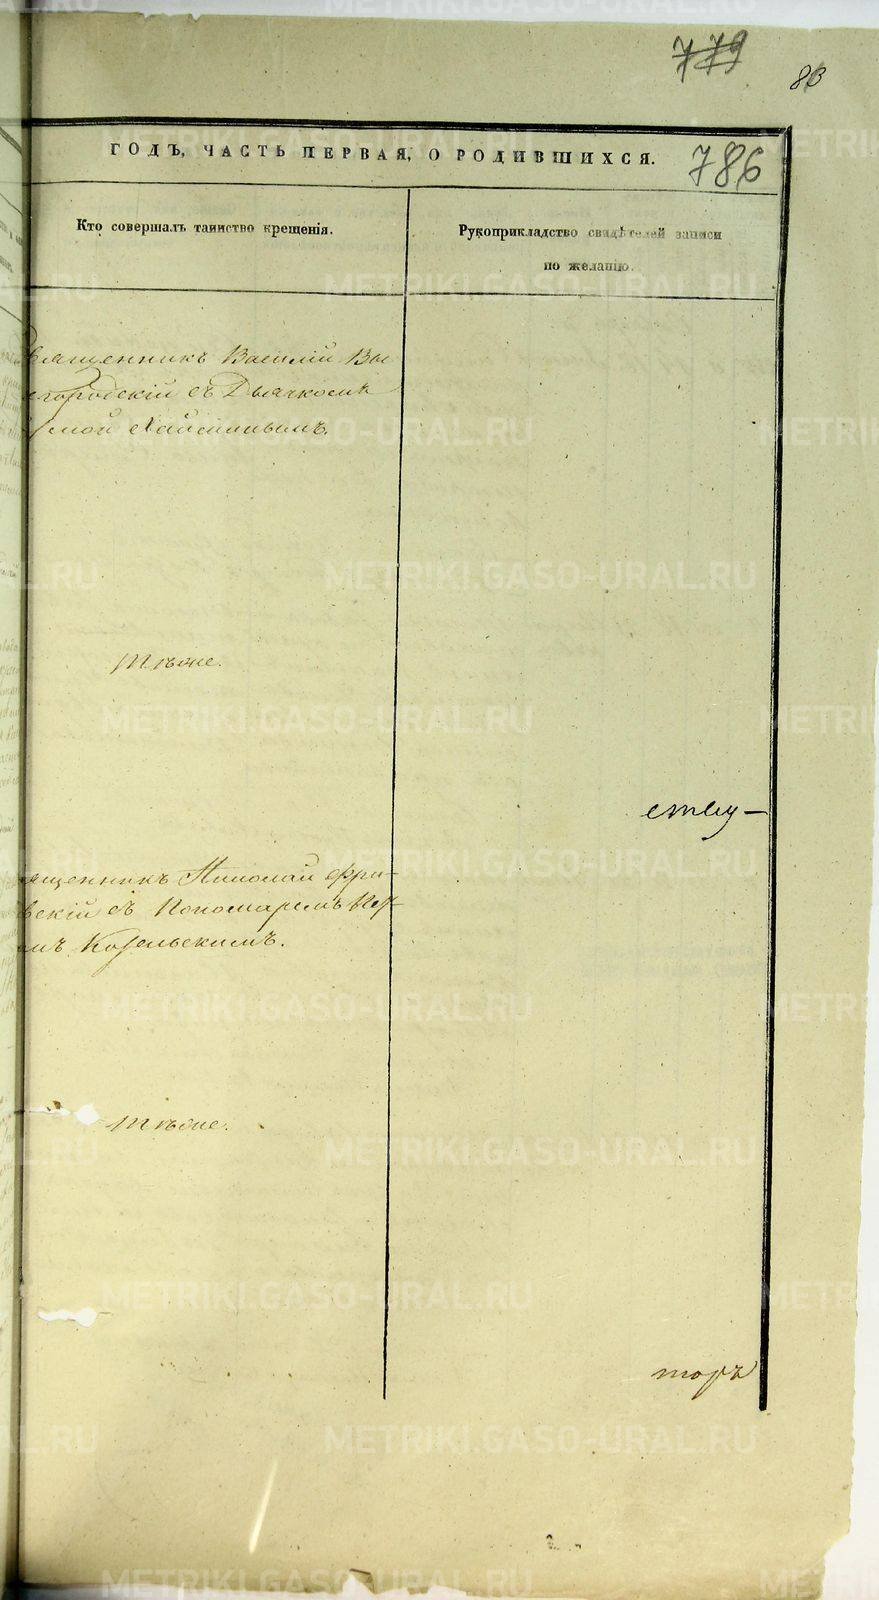 779
83
ГОДЪ, ЧАСТЬ ПЕРВАЯ, О РОДИВШИХСЯ.
786
Кто совершалъ таинство крещенія.
Рукоприкладство свидѣтелей записи
по желанію.
Священникъ Василій Вы
городскій съ Дьячкомъ
тѣже.
ству-
ященникъ Николай Фри-
вскій съ Пономаремъ
Козельскимъ.
тѣже.
торъ
METRIKI.GASO-URAL.RU